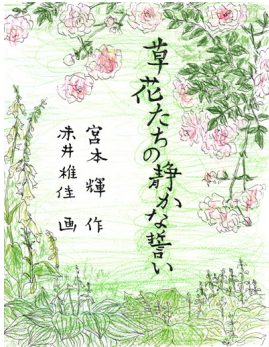 草花たちの静かな誓い
宮本輝 作
赤井稚佳 画